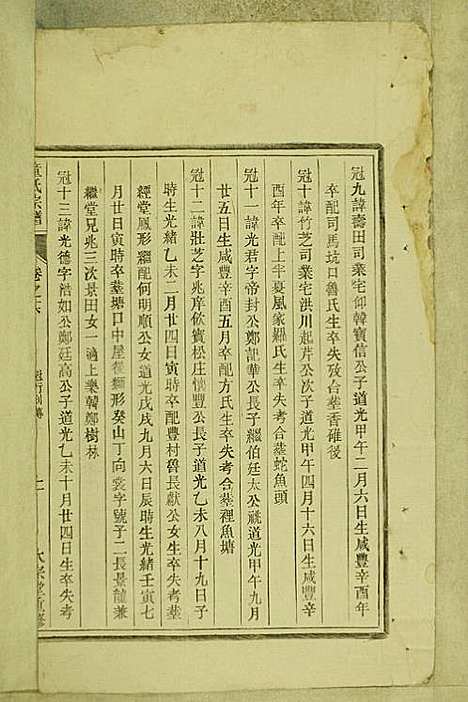 冠九諱壽田司業宅仰韓寶信公子道光甲午二月六日生咸豐辛酉年
卒配司馬坑口魯氏生卒失攷合塟香碓後
冠十諱竹芝司業宅洪川起芹公次子道光甲午四月十六日生咸豐辛
酉年卒配上半夏風家縣氏生卒失考合塟蛇魚頭
冠十一諱光君字帝封公鄭記華公長子繼伯廷太公祧道光甲午九月
廿五日生咸豐辛酉五月卒配方氏生卒失考合塟裡魚塘
冠十二諱壯芝字兆庠佽賓松庄懷豐公長子道光乙未八月十九日子
時生光緒乙未二月廿四日寅時卒配豐村魯長獻公女生卒失考塟
經堂鳳形繼配何明順公女道光戊戌九月六日辰時生光緒壬寅七
月廿日寅時卒塟塘口中屋後獅形癸山丁向裳字號子二長景龍兼
繼堂兄兆三次景田女一適上樂韓鄭樹林
冠十三諱光德字浩如公鄭廷高公子道光乙未十月廿四日生卒失考
童氏宗譜
卷之六
冠行列傳
上